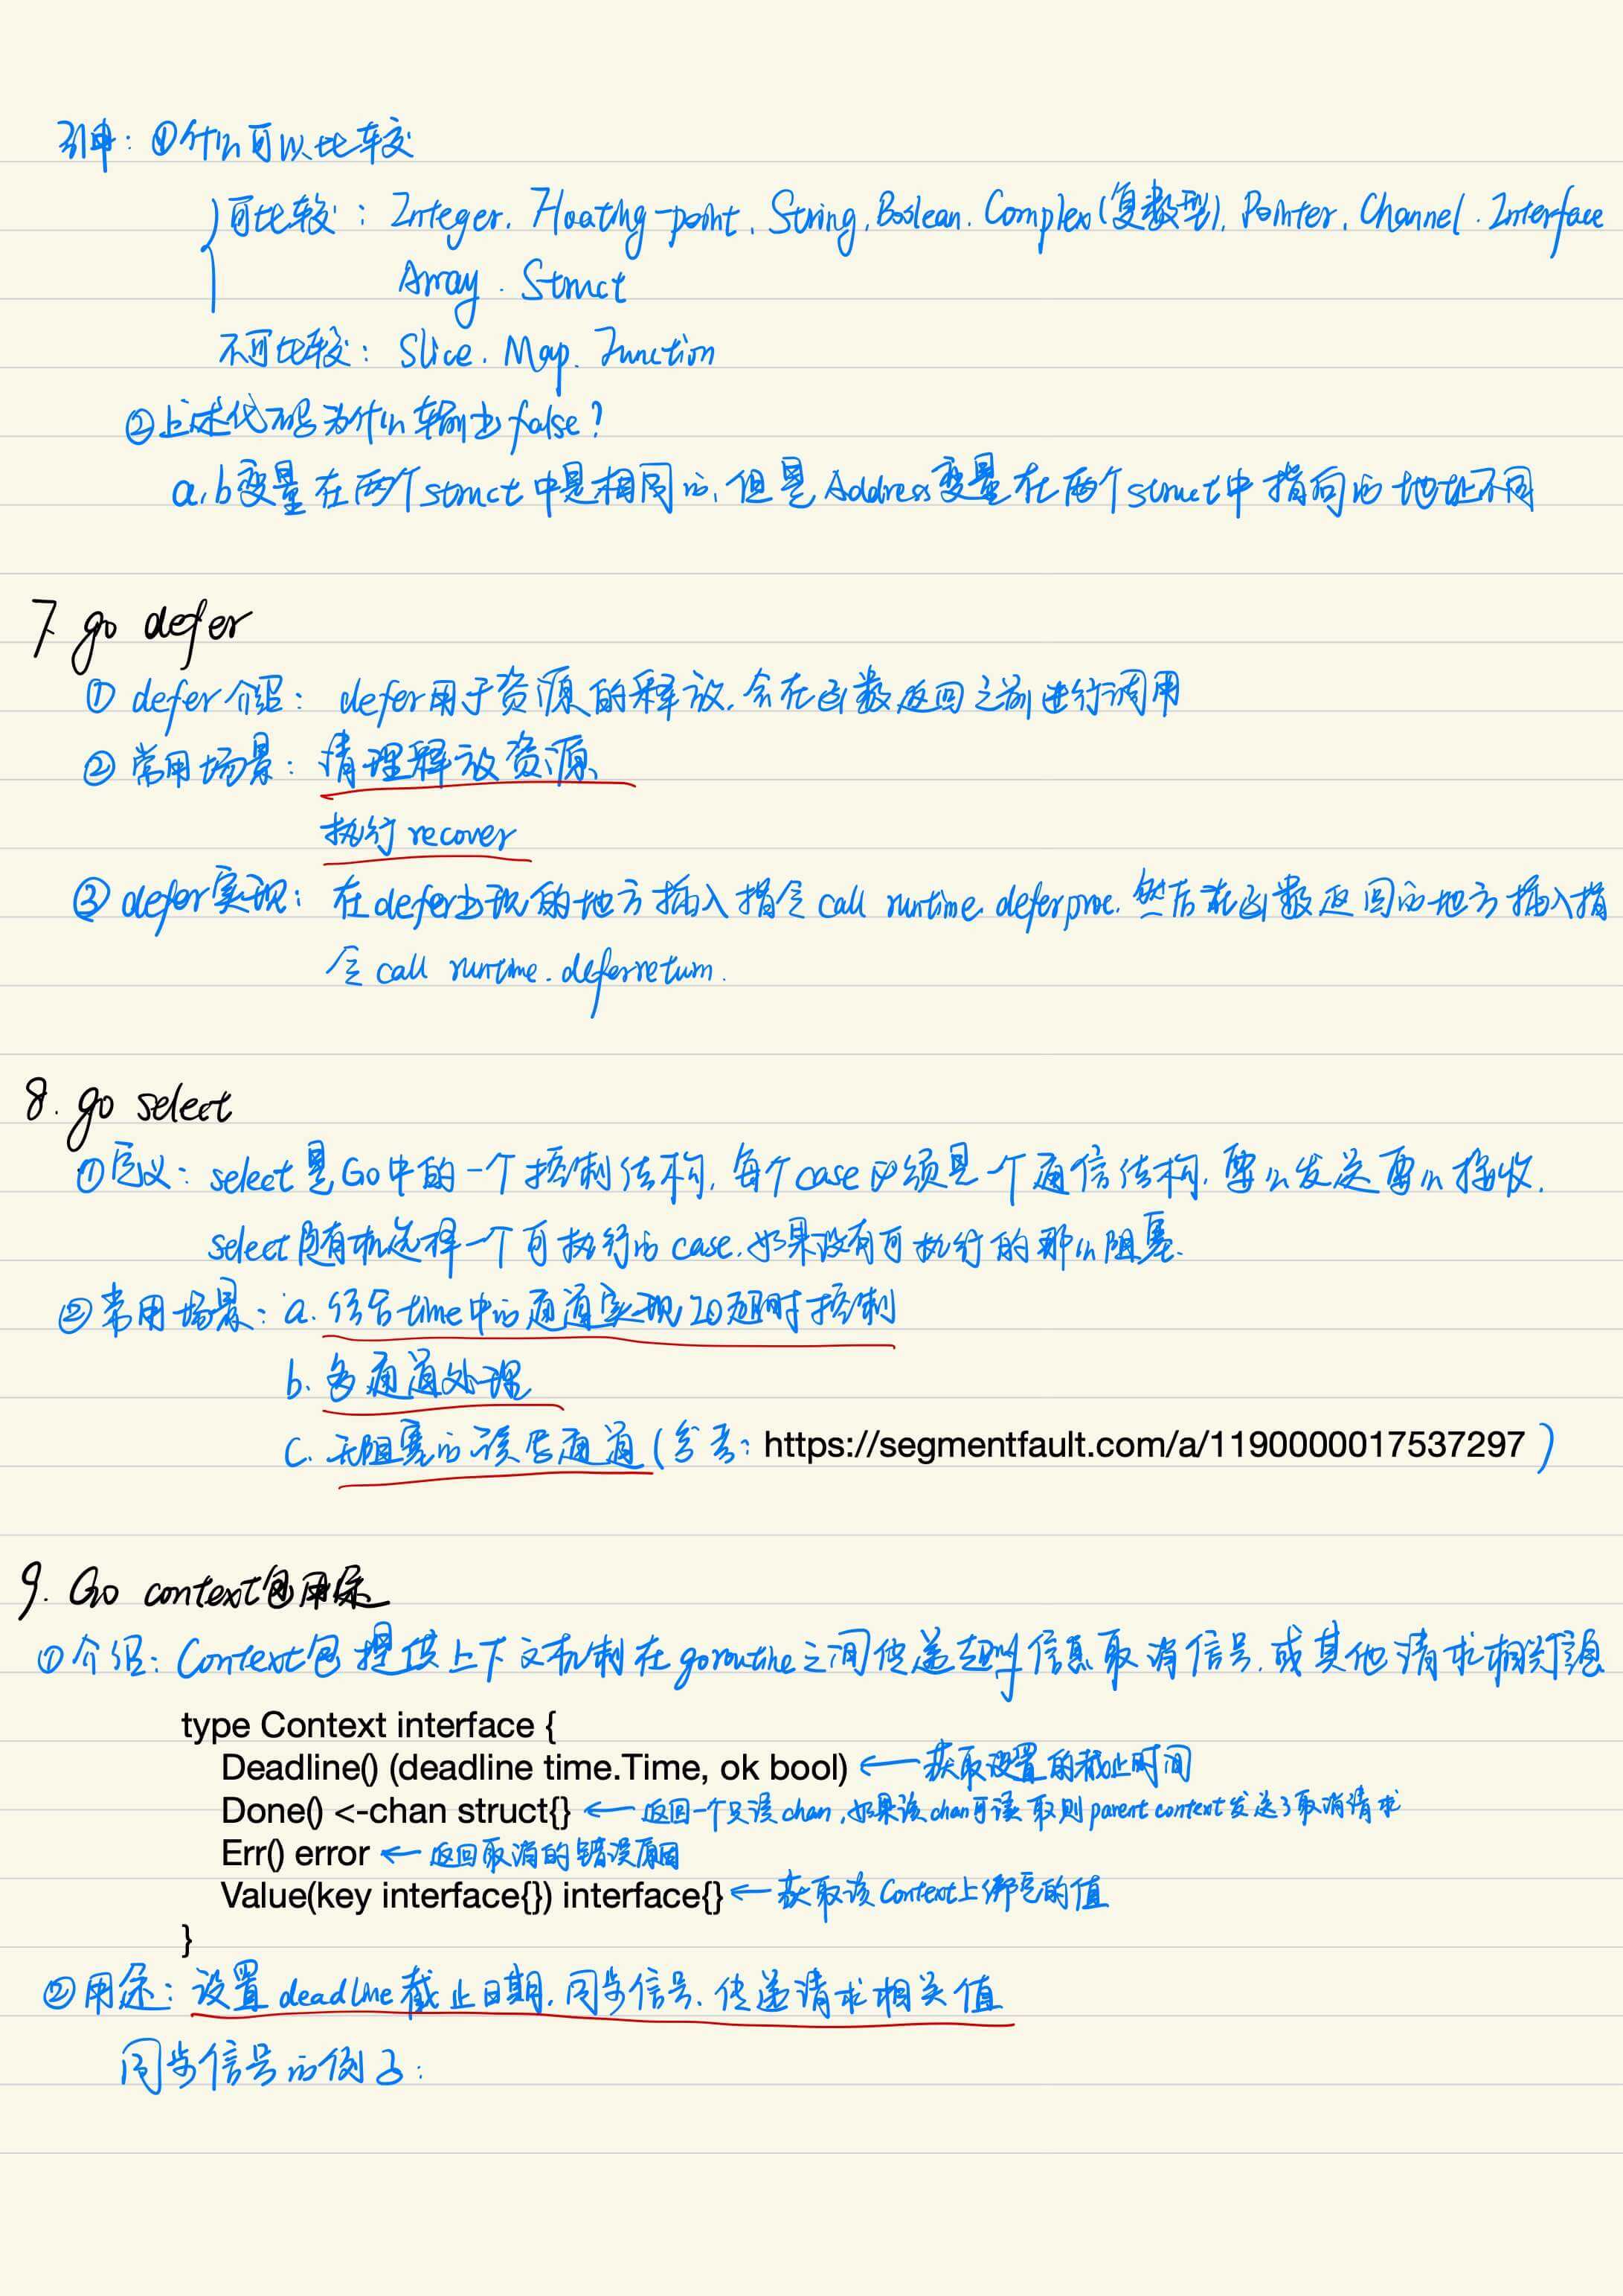 引申：①什么可以比较
可比较：Integer、Floating-point、String、Boolean、Complex（复数型）、Pointer、Channel、Interface
Array、Struct
不可比较：Slice、Map、Function
②上述代码为什么输出false？
a,b变量在两个struct中是相同的，但是Address变量在两个struct中指向的地址不同
7. go defer
① defer介绍：defer用于资源的释放，会在函数返回之前进行调用
②常用场景：清理释放资源
执行recover
③defer实现：在defer出现的地方插入指令call runtime.deferproc，然后在函数返回的地方插入指
令call runtime.deferreturn.
8. go select
①定义：select是Go中的一个控制结构，每个case必须是一个通信结构，要么发送要么接收.
select随机选择一个可执行的case，如果没有可执行的那么阻塞.
②常用场景：a.结合time中的通道实现IO超时控制
b.多通道处理
c.无阻塞的读写通道（参考：https://segmentfault.com/a/1190000017537297）
9. Go context包用途
①介绍：Context包提供上下文机制在goroutine之间传递超时信息，取消信号，或其他请求相关信息
type Context interface {
Deadline() (deadline time.Time, ok bool) ←获取设置的截止时间
Done() <-chan struct{} ←返回一个只读chan，如果该chan可读取则parent context发送了取消请求
Err() error ←返回取消的错误原因
Value(key interface{}) interface{} ←获取该Context上绑定的值
}
②用途：设置deadline截止日期，同步信号，传递请求相关值
同步信号的例子：